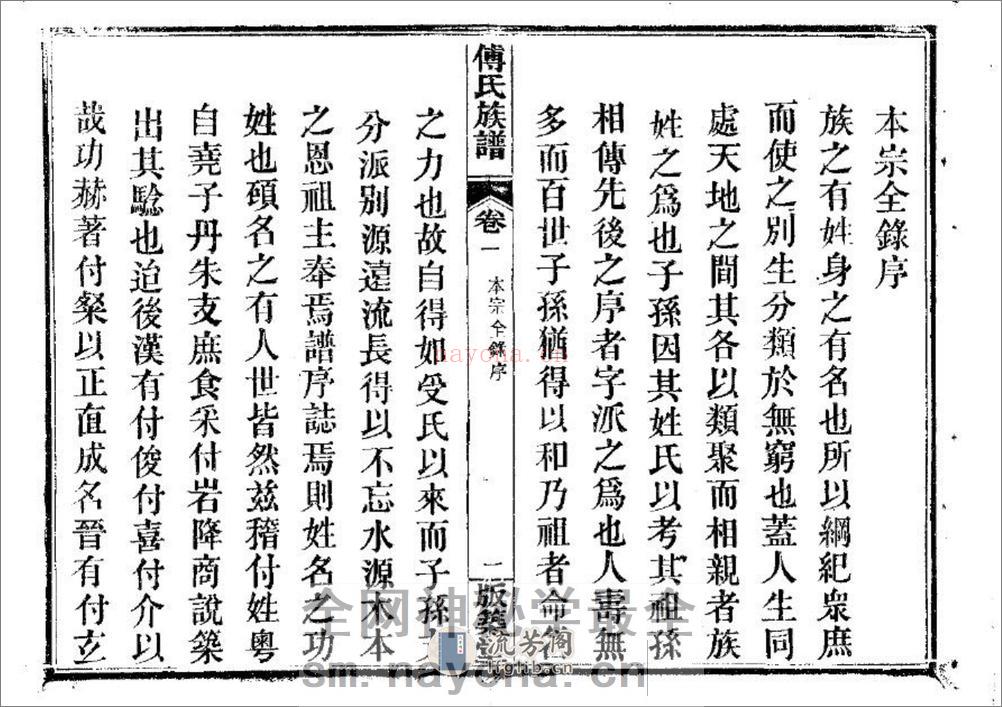 本宗全錄序
族之有姓身之有名也所以綱紀衆庶
而使之別生分類於無窮也蓋人生同
處天地之間其各以類聚而相親者族
姓之爲也子孫因其姓氏以考其祖孫
相傳先後之序者字派之爲也人壽無
多而百世子孫猶得以和乃祖者命名
傅氏族譜
卷一
本宗全錄序
一
版築
之力也故自得如受氏以來而子孫
分派別源遠流長得以不忘水源木本
之恩祖主奉焉譜序誌焉則姓名之功
姓也碩名之有人世皆然茲稽付姓粵
自堯子丹朱支庶食采付岩降商說築
出其騐也迨後漢有付俊付喜付介以
哉功赫著付粲以正直成名晉有付玄
nayona.cn
全网神秘学最全
sm.nayona.cn
流芳阁
lfglib.cn